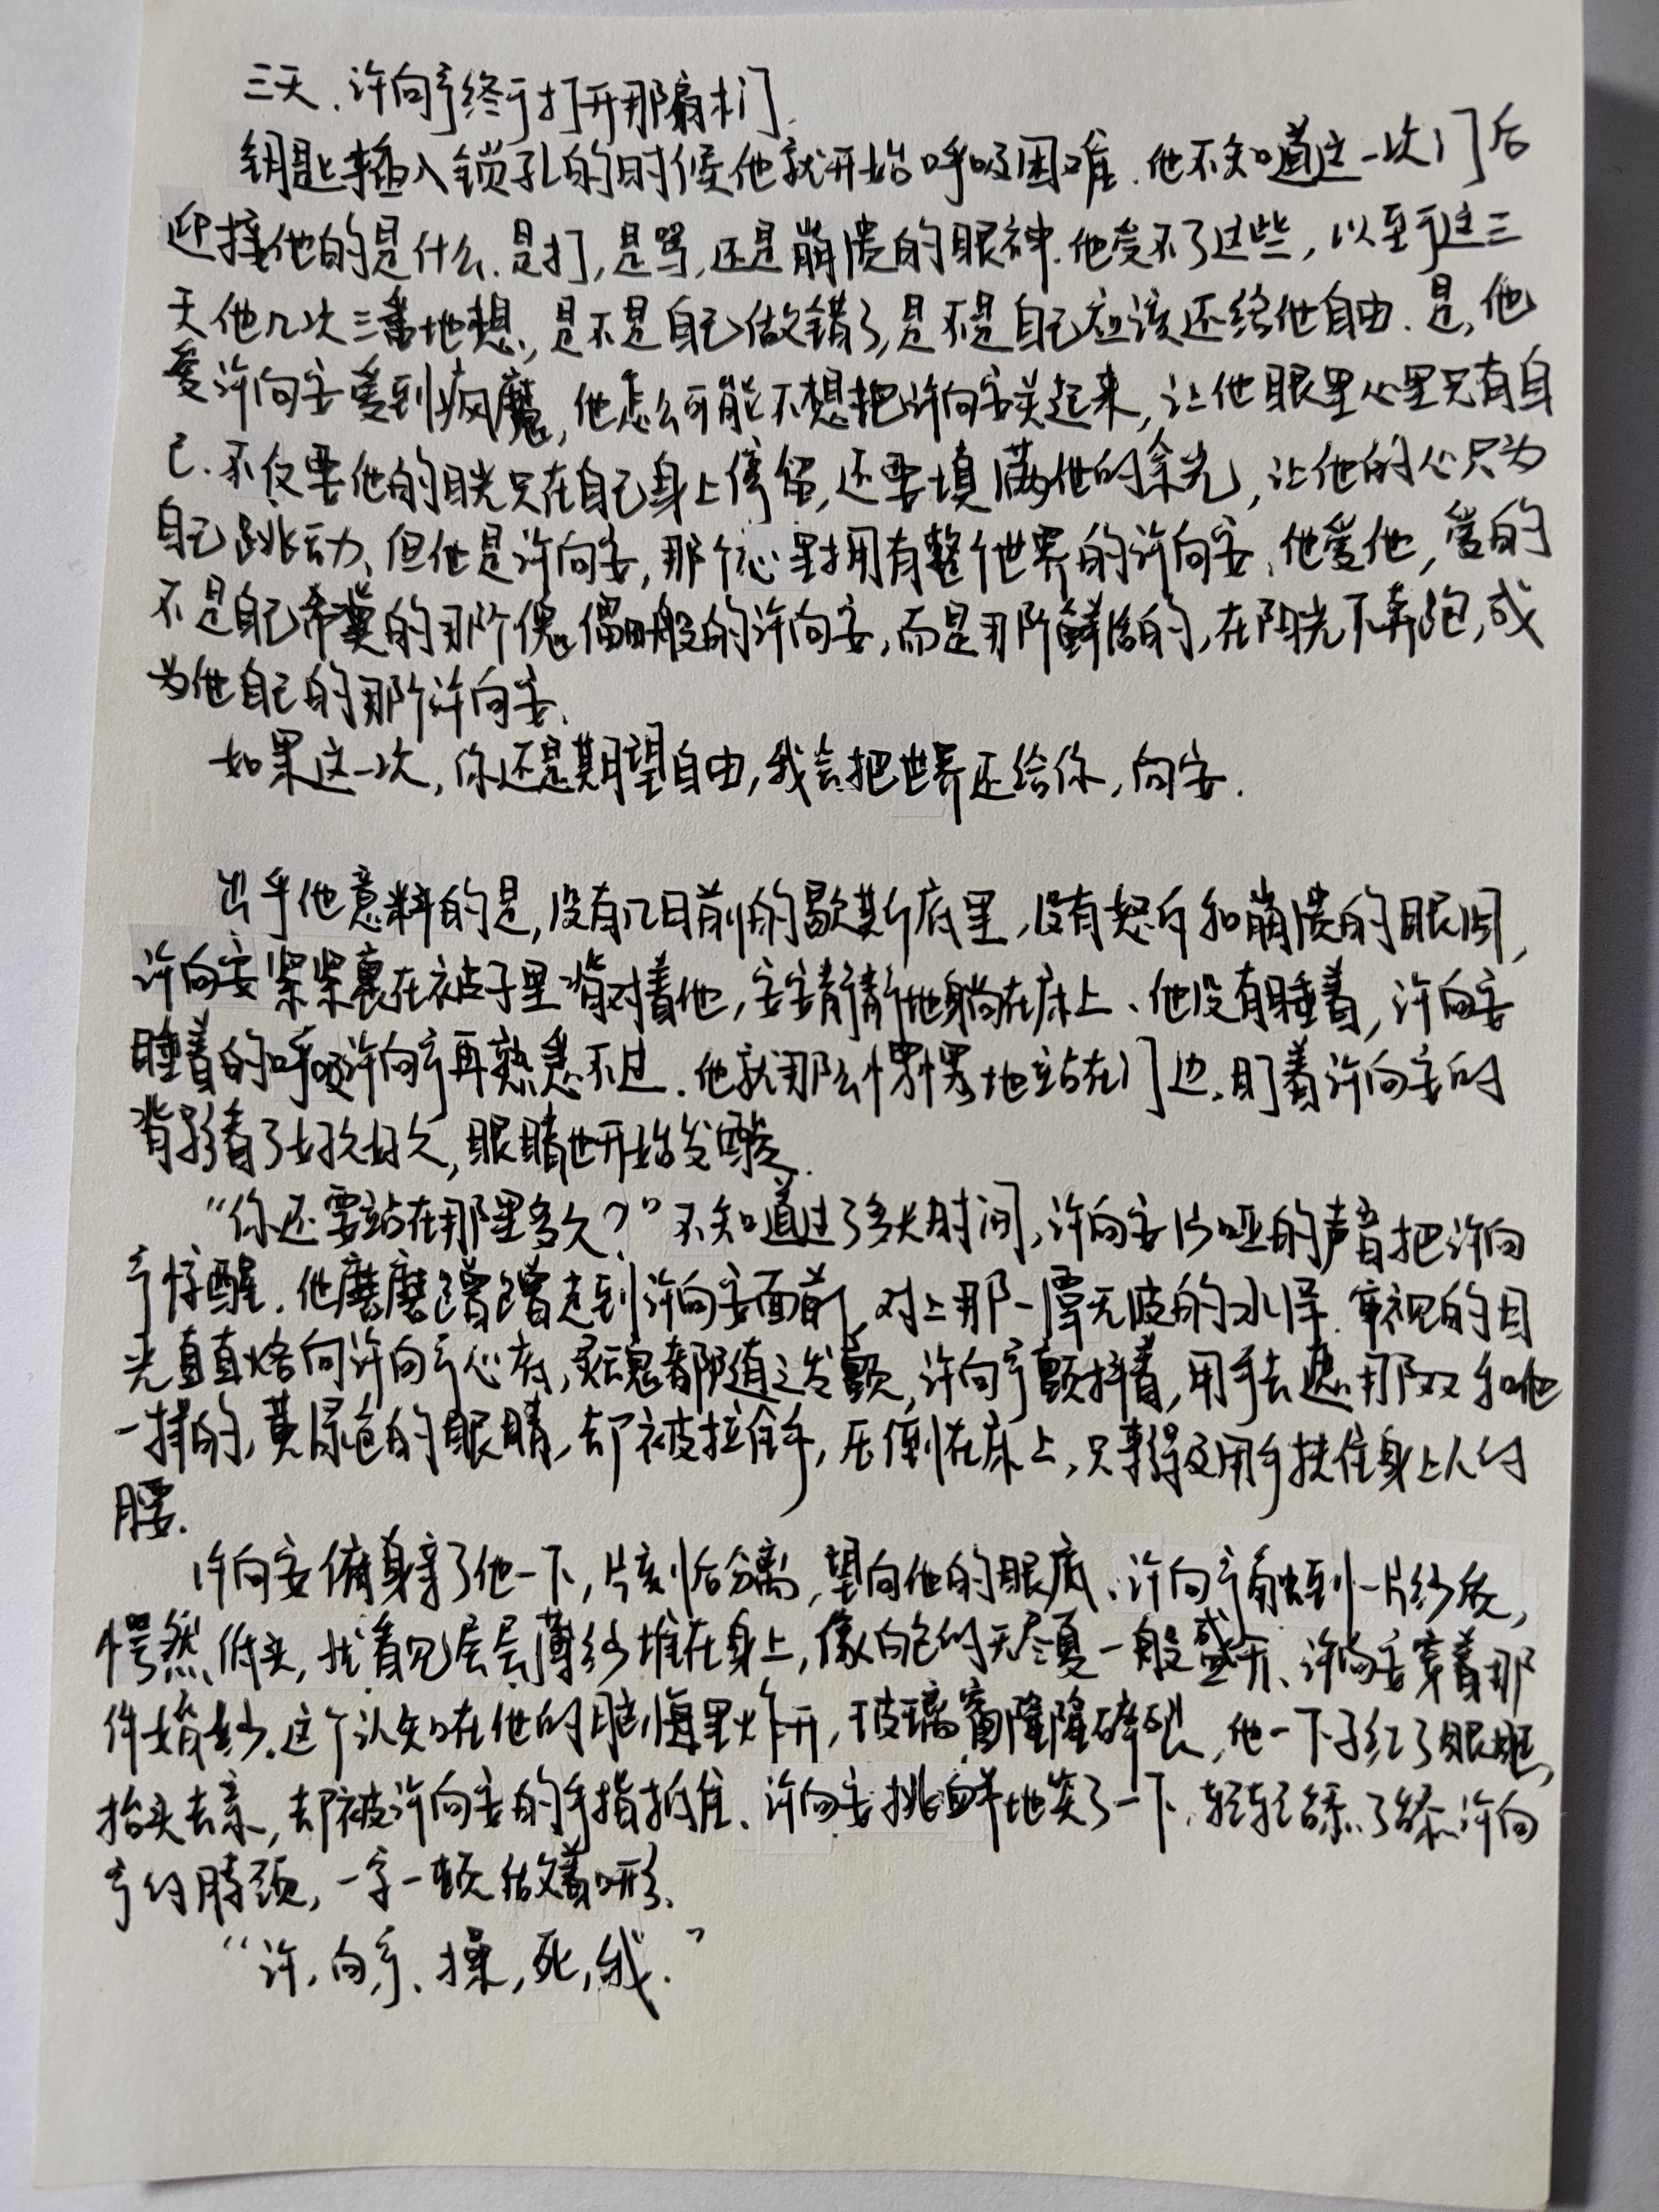 三天.许向亭终于打开那扇木门.
钥匙插入锁孔的时候他就开始呼吸困难.他不知道这一次门后
迎接他的是什么.是打,是骂,还是崩溃的眼神.他受不了这些,以至于这三
天他几次三番地想,是不是自己做错了,是不是自己应该还给他自由.是,他
爱许向安爱到疯魔,他怎么可能不想把许向安关起来,让他眼里心里只有自
己.不仅要他的目光只在自己身上停留,还要填满他的余光,让他的心只为
自己跳动、但他是许向安,那个心里拥有整个世界的许向安.他爱他,爱的
不是自己希冀的那个傀儡一般的许向安,而是那个鲜活的,在阳光下奔跑,成
为他自己的那个许向安.
如果这一次,你还是期望自由,我会把世界还给你,向安.
出乎他意料的是,没有几日前的歇斯底里,没有怒斥和崩溃的眼泪,
许向安紧紧裹在被子里背对着他,安安静静地躺在床上、他没有睡着,许向安
睡着的呼吸许向亭再熟悉不过.他就那么愣愣地站在门边,盯着许向安的
背影看了好久好久,眼睛也开始发酸.
“你还要站在那里多久?”不知道过了多长时间,许向安沙哑的声音把许向
亭惊醒.他磨磨蹭蹭走到许向安面前,对上那一潭无波的水泽.审视的目
光直直烙向许向亭心底,灵魂都随之发颤,许向亭颤抖着,用手去遮那双和他
一样的,黄绿色的眼睛,却被拉住手,压倒在床上,只来得及用手扶住身上人的
腰.
许向安俯身亲了他一下,片刻后分离,望向他的眼底、许向亭触到一片纱质,
愕然低头,才看见层层薄纱堆在身上,像白色的无尽夏一般盛开、许向安穿着那
件婚纱.这个认知在他的脑海里炸开,玻璃窗隆隆碎裂,他一下子红了眼眶,
抬头去亲,却被许向安的手指抵住、许向安挑衅地笑了一下,轻轻舔了舔许向
亭的脖颈,一字一顿做着口形、
“许,向,亭、操,死,我.”